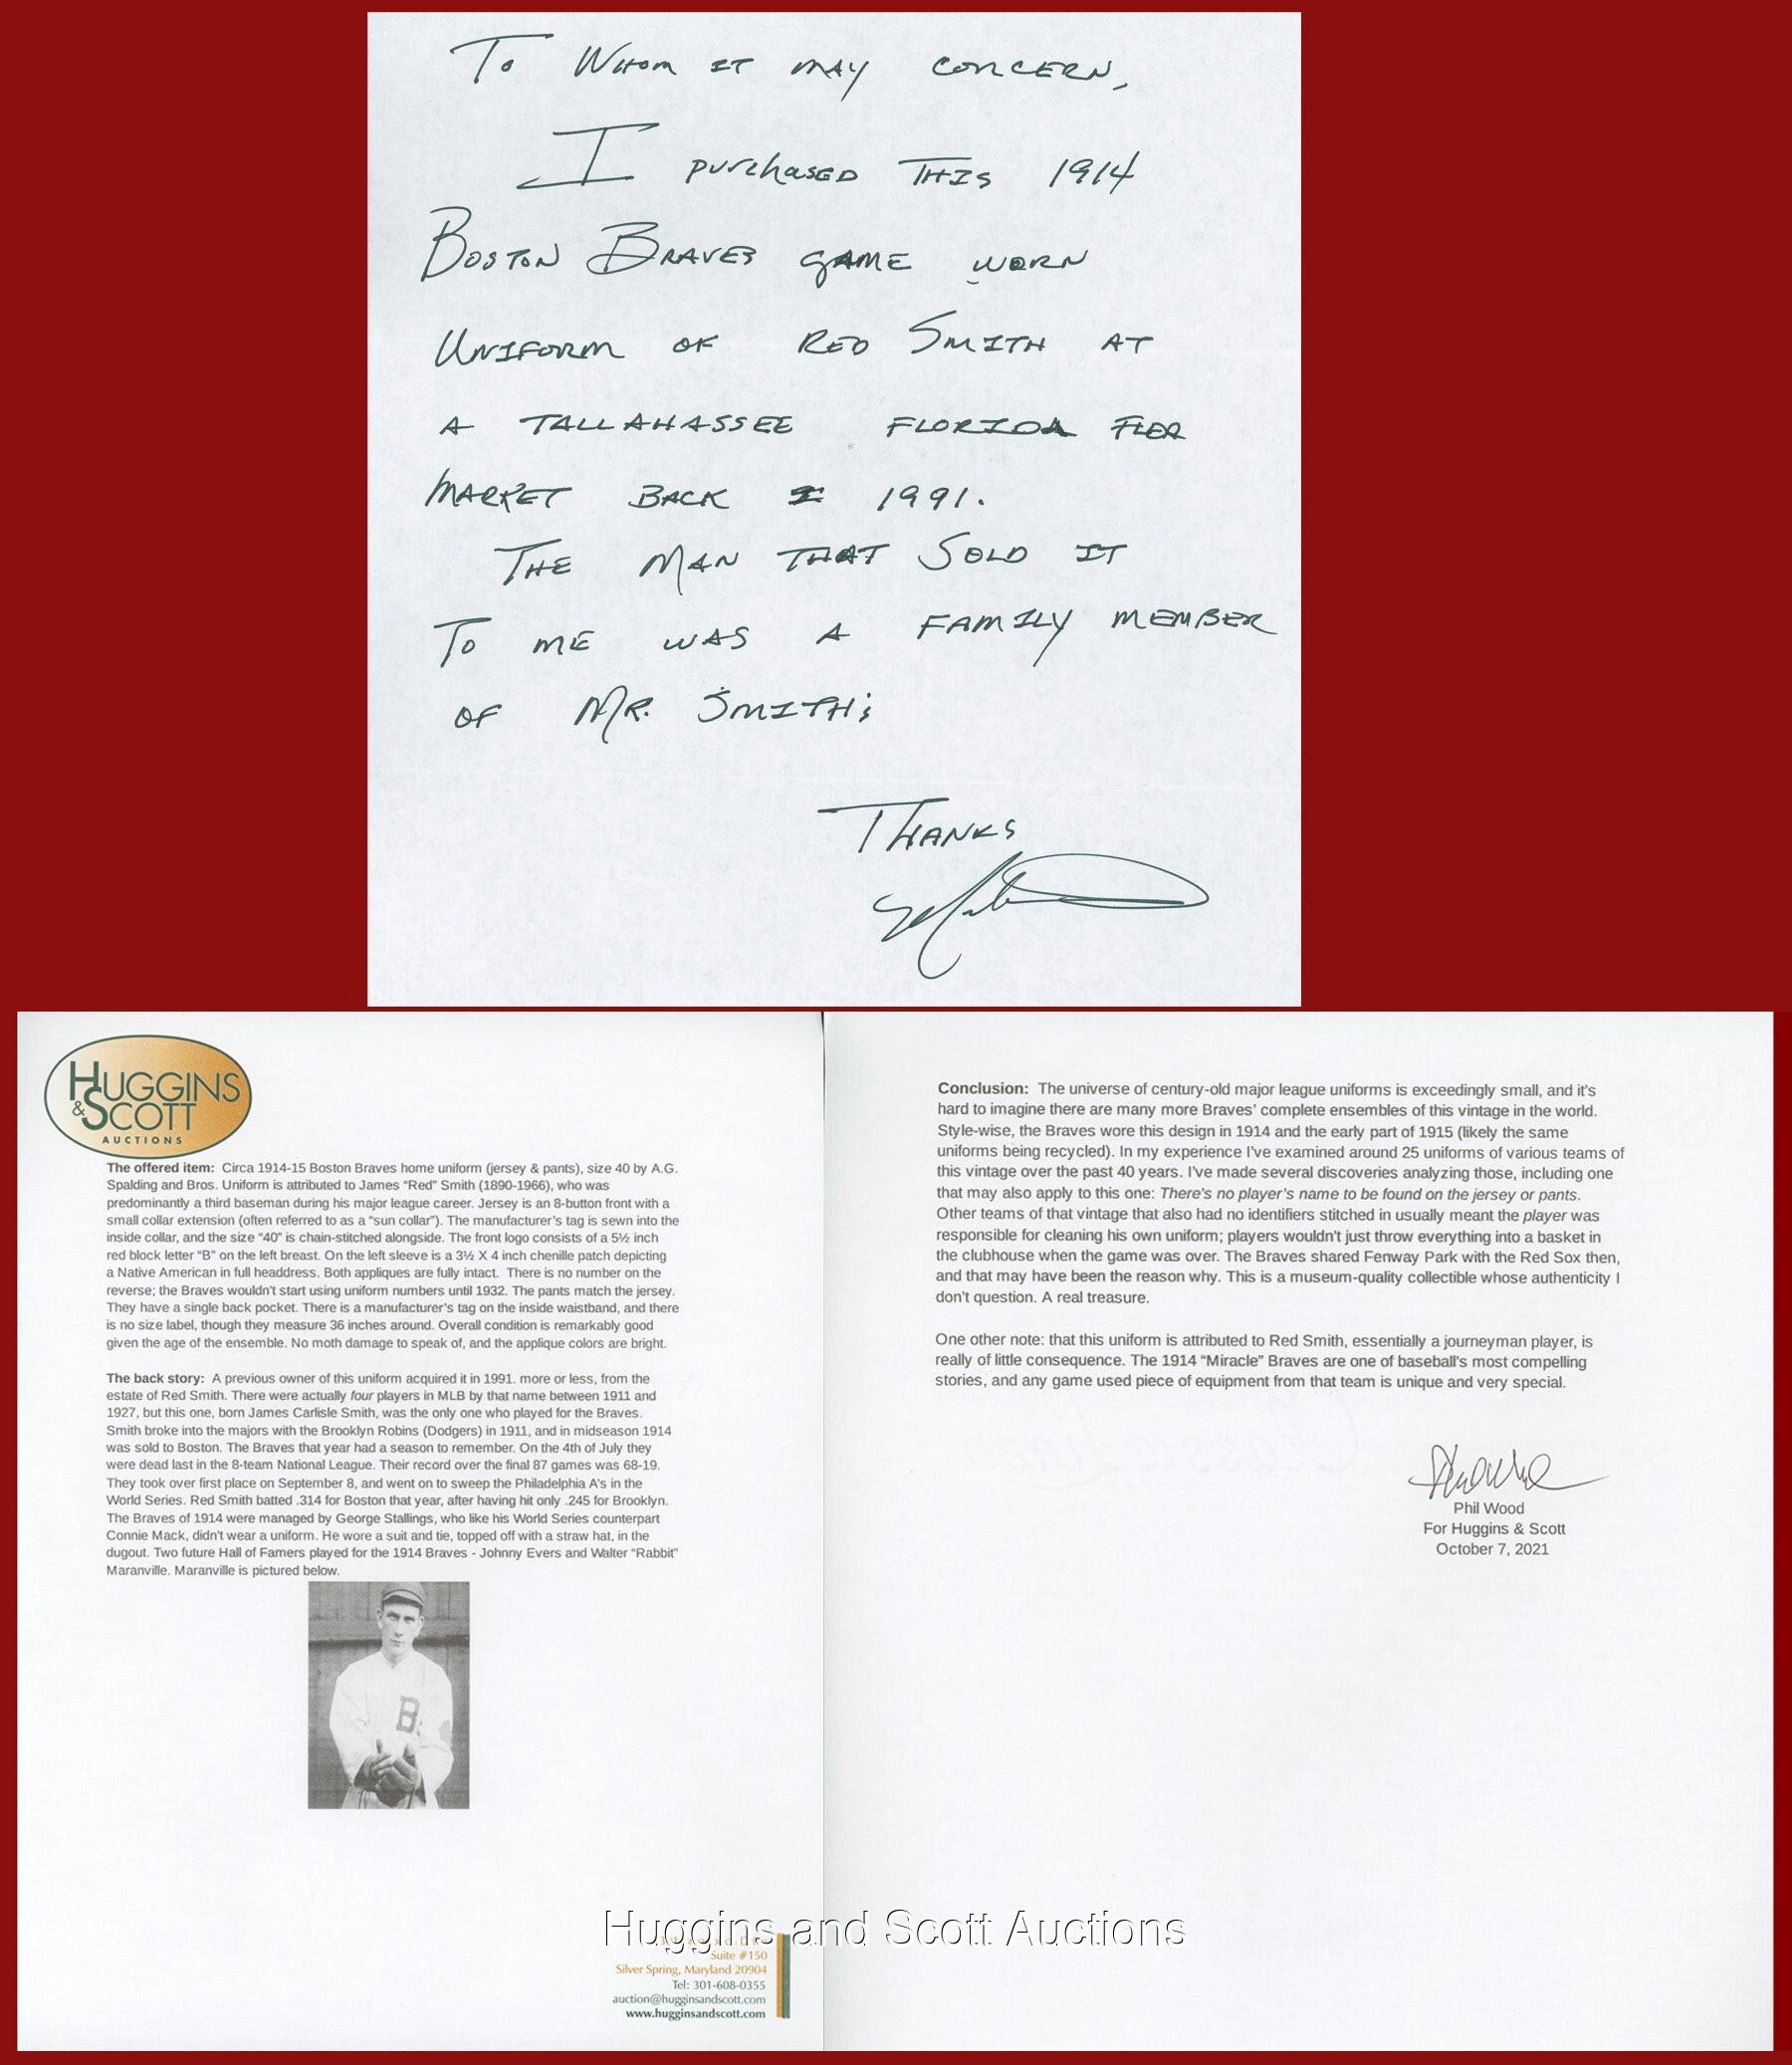 To Whom it may concern,
I purchased this 1914
Boston Braves game worn
uniform of Red Smith at
a Tallahassee Florida flea
market back I 1991.
The man that sold it
to me was a family member
of Mr. Smith's
Thanks
HUGGINS
& SCOTT
AUCTIONS
The offered item: Circa 1914-15 Boston Braves home uniform (jersey & pants), size 40 by A.G.
Spalding and Bros. Uniform is attributed to James “Red” Smith (1890-1966), who was
predominantly a third baseman during his major league career. Jersey is an 8-button front with a
small collar extension (often referred to as a “sun collar”). The manufacturer's tag is sewn into the
inside collar, and the size “40” is chain-stitched alongside. The front logo consists of a 5½ inch
red block letter “B” on the left breast. On the left sleeve is a 3½ X 4 inch chenille patch depicting
a Native American in full headdress. Both appliques are fully intact. There is no number on the
reverse; the Braves wouldn't start using uniform numbers until 1932. The pants match the jersey.
They have a single back pocket. There is a manufacturer's tag on the inside waistband, and there
is no size label, though they measure 36 inches around. Overall condition is remarkably good
given the age of the ensemble. No moth damage to speak of, and the applique colors are bright.
The back story: A previous owner of this uniform acquired it in 1991. more or less, from the
estate of Red Smith. There were actually four players in MLB by that name between 1911 and
1927, but this one, born James Carlisle Smith, was the only one who played for the Braves.
Smith broke into the majors with the Brooklyn Robins (Dodgers) in 1911, and in midseason 1914
was sold to Boston. The Braves that year had a season to remember. On the 4th of July they
were dead last in the 8-team National League. Their record over the final 87 games was 68-19.
They took over first place on September 8, and went on to sweep the Philadelphia A's in the
World Series. Red Smith batted .314 for Boston that year, after having hit only .245 for Brooklyn.
The Braves of 1914 were managed by George Stallings, who like his World Series counterpart
Connie Mack, didn't wear a uniform. He wore a suit and tie, topped off with a straw hat, in the
dugout. Two future Hall of Famers played for the 1914 Braves - Johnny Evers and Walter “Rabbit”
Maranville. Maranville is pictured below.
B
Suite #150
Silver Spring, Maryland 20904
Tel: 301-608-0355
auction@hugginsandscott.com
www.hugginsandscott.com
Conclusion: The universe of century-old major league uniforms is exceedingly small, and it's
hard to imagine there are many more Braves' complete ensembles of this vintage in the world.
Style-wise, the Braves wore this design in 1914 and the early part of 1915 (likely the same
uniforms being recycled). In my experience I've examined around 25 uniforms of various teams of
this vintage over the past 40 years. I've made several discoveries analyzing those, including one
that may also apply to this one: There's no player's name to be found on the jersey or pants.
Other teams of that vintage that also had no identifiers stitched in usually meant the player was
responsible for cleaning his own uniform; players wouldn't just throw everything into a basket in
the clubhouse when the game was over. The Braves shared Fenway Park with the Red Sox then,
and that may have been the reason why. This is a museum-quality collectible whose authenticity I
don't question. A real treasure.
One other note: that this uniform is attributed to Red Smith, essentially a journeyman player, is
really of little consequence. The 1914 “Miracle” Braves are one of baseball's most compelling
stories, and any game used piece of equipment from that team is unique and very special.
Phil Wood
For Huggins & Scott
October 7, 2021
Huggins and Scott Auctions